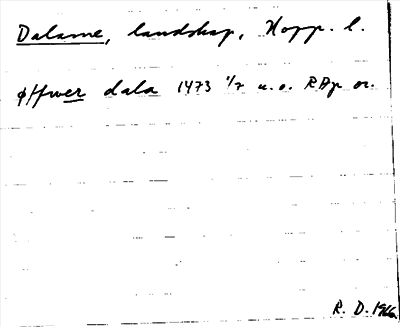 Dalarne, landskap, Kopp. l.
øffwer dala 1473 1/7 u.o. RAp or.
R. D. 1966.